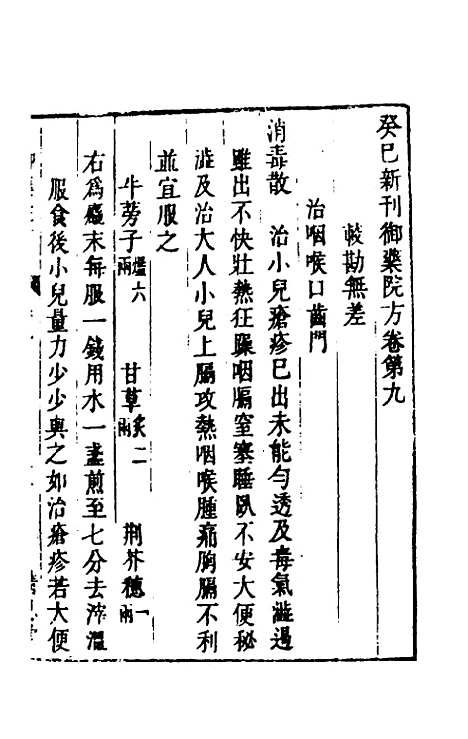 癸巳新刊御藥院方卷第九
㪉勘無差
治咽喉口齒門
消毒散　治小兒瘡疹已出未能勻透及毒氣澁過
雖出不快壯熱狂躁咽膈窒塞睡臥不安大便秘
澁及治大人小兒上膈攻熱咽喉腫痛胸膈不利
並宜服之
牛蒡子爁六兩　甘草炙二兩　荆芥穗一兩
右爲麄末每服一錢用水一盞煎至七分去滓溫
服食後小兒量力少少與之如治瘡疹若大便